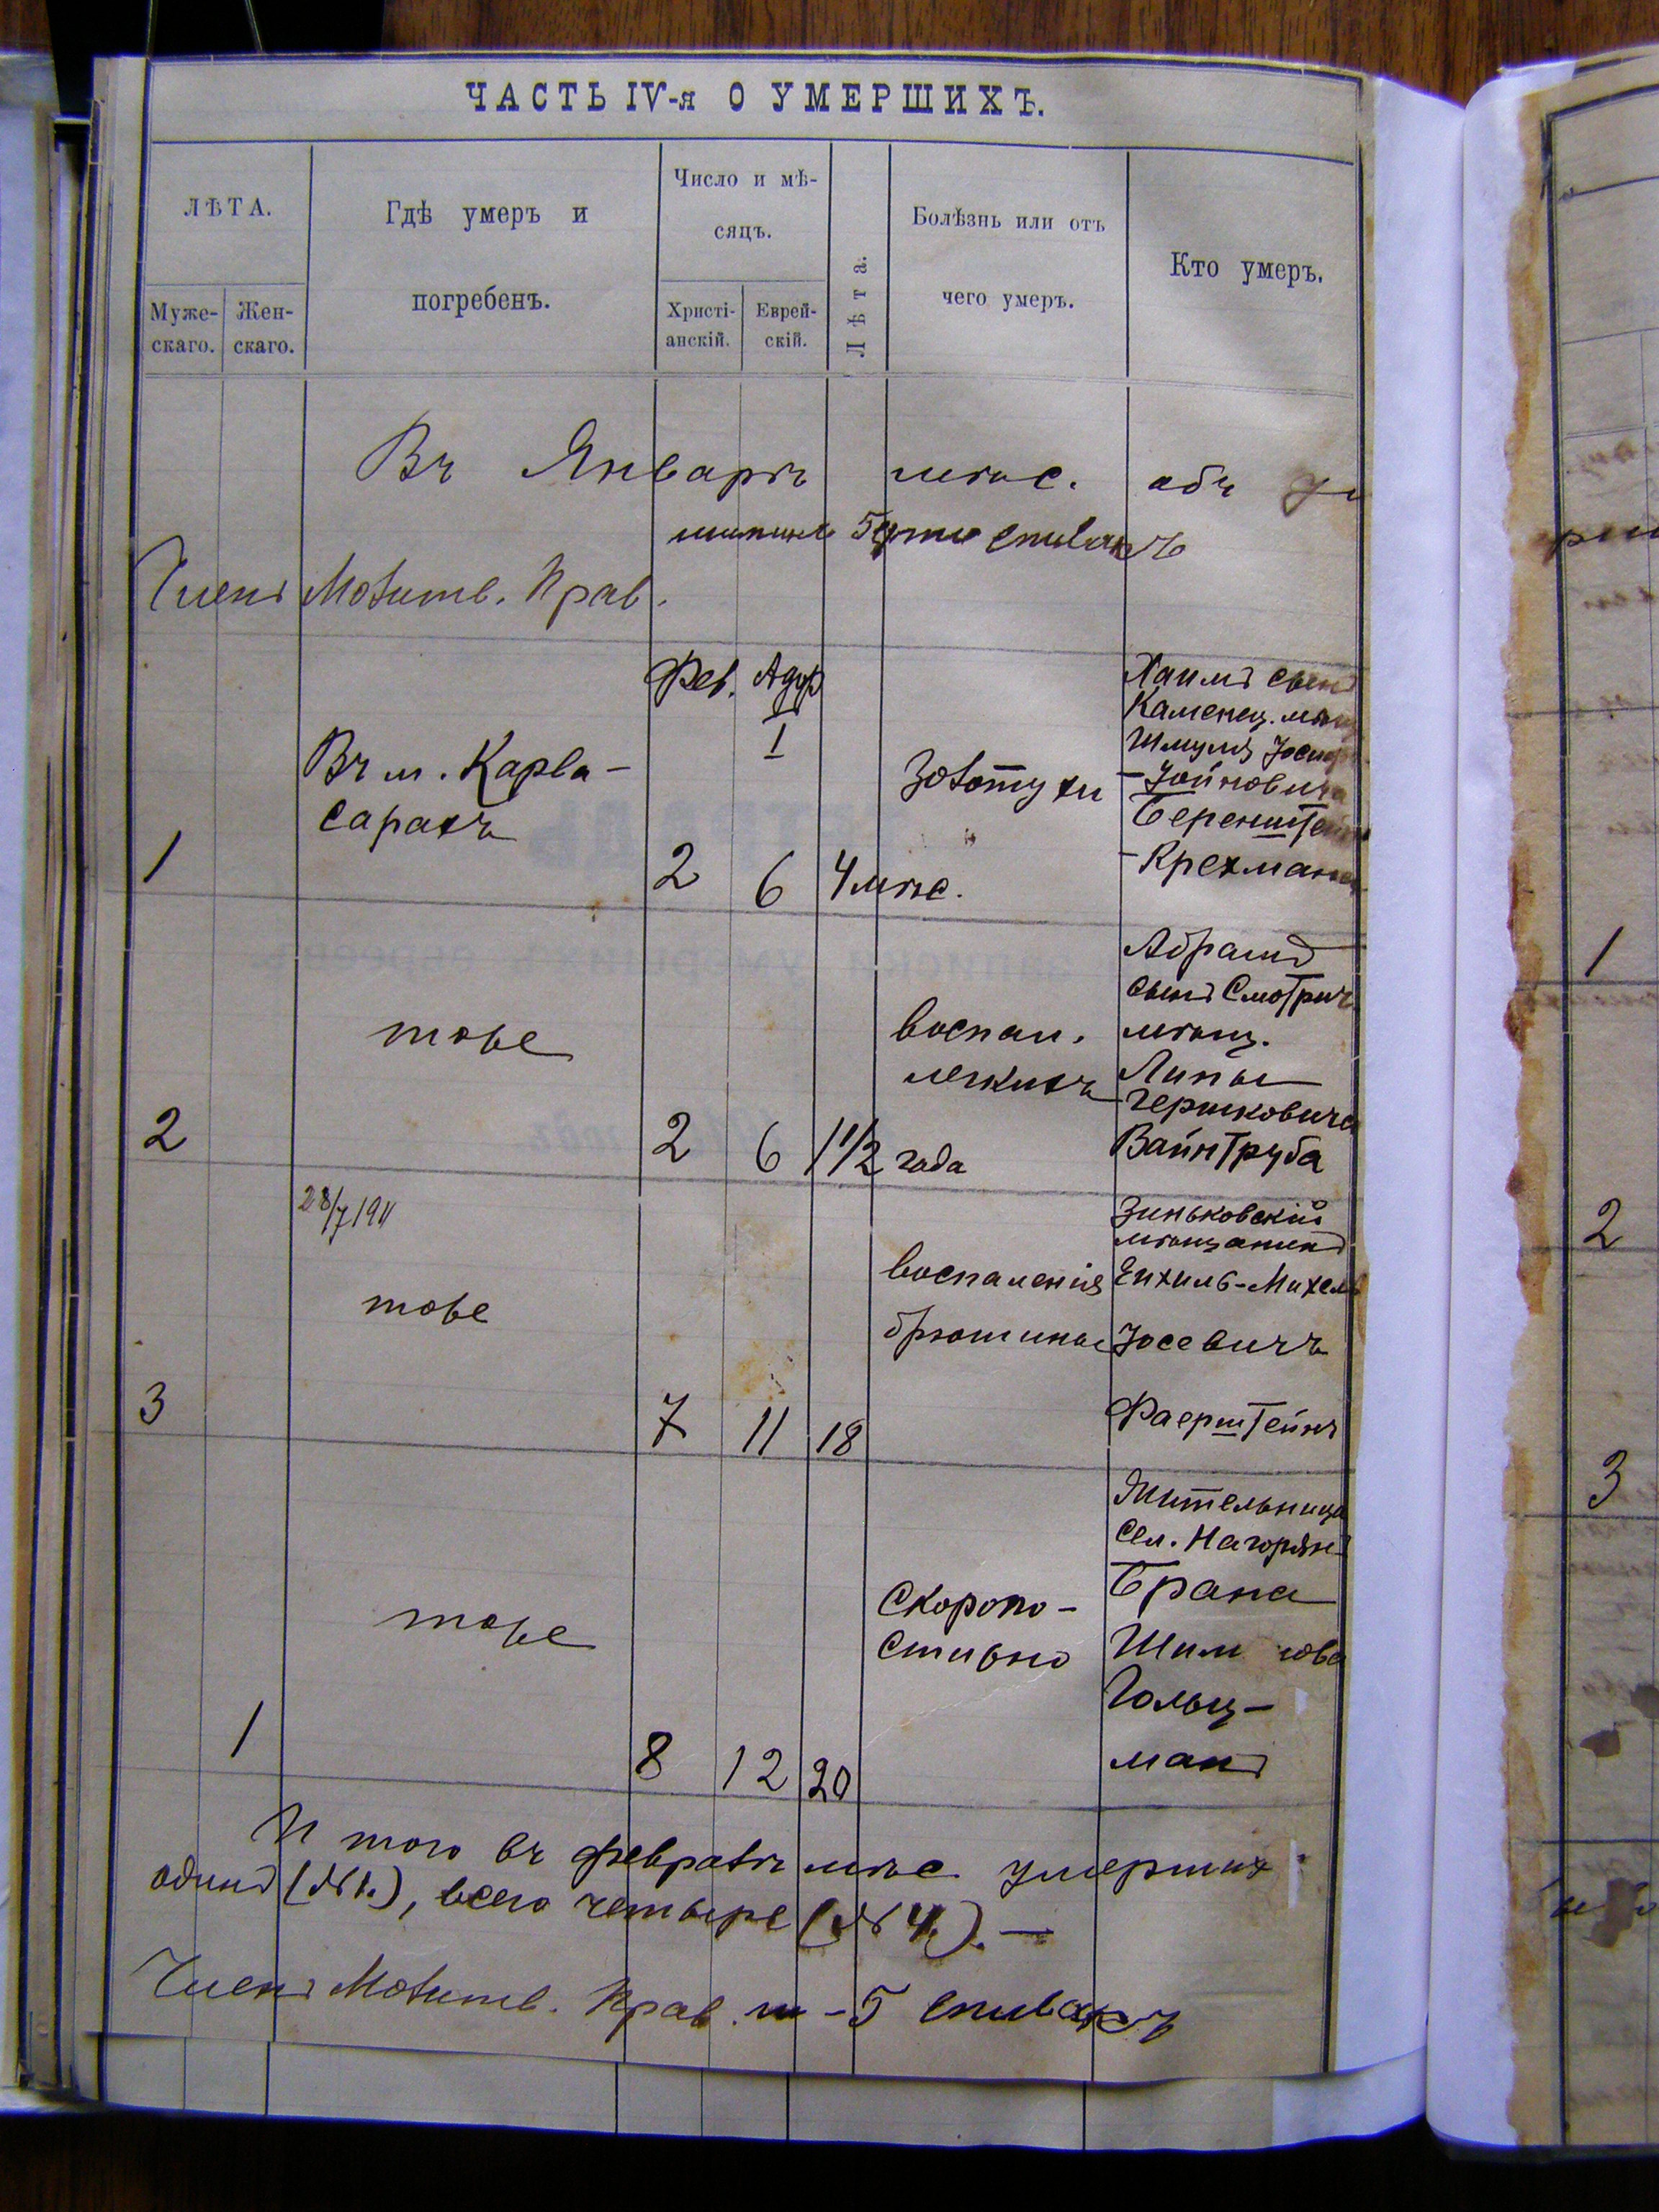 ЧАСТЬ IV-я О УМЕРШИХЪ.
ЛѢТА.
Муже-
скаго.
Жен-
скаго.
Гдѣ умеръ и
погребенъ.
Число и мѣ-
сяцъ.
Христі-
анскій.
Еврей-
скій.
Лѣта.
Болѣзнь или отъ
чего умеръ.
Кто умеръ.
Въ Январѣ мѣс. объ
Спивакъ
Членъ Молитв. Прав.
Фев. Адар
I
Въ м. Карва-
сарахъ
Золотухи
Хаимъ сынъ
Каменец. мѣщ
Шмуля
Беренштейн
-Крехмана
1
2
6
4 мѣс.
тоже
воспал.
легкихъ
Абрамъ
сынъ Смотрич
мѣщ.
Липы
Гершковича
Вайнтруба
2
2
6
1 1/2 года
28/7 1911
тоже
воспаленія
брюшины
Зиньковскій
мѣщанинъ
Ехиль-Михель
Іосевичъ
Фаерштейнъ
3
7
11
18
тоже
Скоропо-
стижно
Жительница
сел. Нагорян
Брана
Шим
Гольц-
манъ
1
8
12
20
И того въ февралѣ мѣс умерших
одинъ (№ 1.), всего четыре (№ 4.). —
Членъ Молитв. Прав. Спивакъ
1
2
3